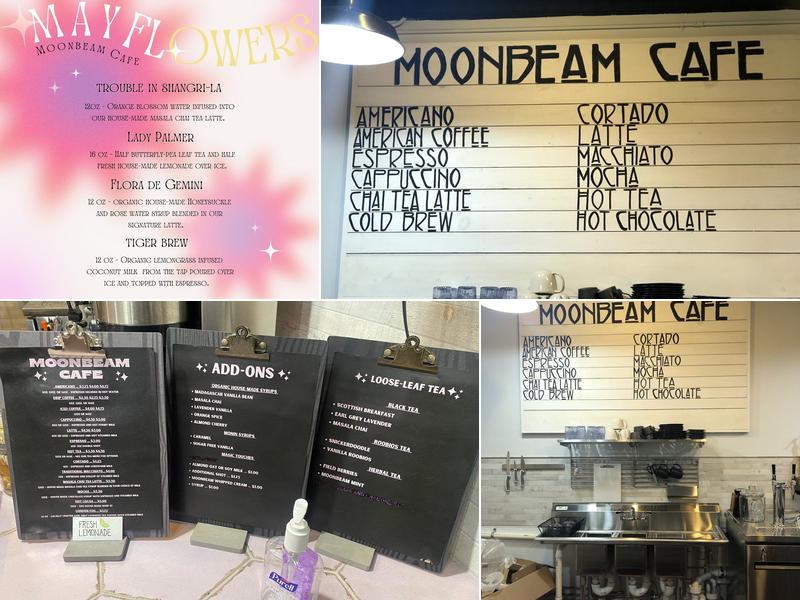 MAYFLOWERS
MOONBEAM CAFE
TROUBLE IN SHANGRI-LA
12OZ - ORANGE BLOSSOM WATER INFUSED INTO
OUR HOUSE-MADE MASALA CHAI TEA LATTE.
LADY PALMER
16 OZ - HALF BUTTERFLY-PEA LEAF TEA AND HALF
FRESH HOUSE-MADE LEMONADE OVER ICE.
FLORA DE GEMINI
12 OZ - ORGANIC HOUSE-MADE HONEYSUCKLE
AND ROSE WATER SYRUP BLENDED IN OUR
SIGNATURE LATTE.
TIGER BREW
12 OZ - ORGANIC LEMONGRASS INFUSED
COCONUT MILK FROM THE TAP POURED OVER
ICE AND TOPPED WITH ESPRESSO.
MOONBEAM CAFE
AMERICANO
AMERICAN COFFEE
ESPRESSO
CAPPUCCINO
CHAI TEA LATTE
COLD BREW
CORTADO
LATTE
MACCHIATO
MOCHA
HOT TEA
HOT CHOCOLATE
MOONBEAM
CAFE
AMERICANO
DRIP COFFEE
ICED COFFEE
CAPPUCCINO
LATTE
ESPRESSO
HOT TEA
CORTADO
TRADITIONAL MACCHIATO
MASALA CHAI TEA LATTE
MOCHA
HOT COCOA
LONDON FOG
FRESH
LEMONADE
ADD-ONS
ORGANIC HOUSE MADE SYRUPS
• MADAGASCAR VANILLA BEAN
• MASALA CHAI
• LAVENDER VANILLA
• ORANGE SPICE
• ALMOND CHERRY
MONIN SYRUPS
• CARAMEL
• SUGAR FREE VANILLA
MAGIC TOUCHES
• ALMOND OAT OR SOY MILK .. $1.00
• ADDITIONAL SHOT .. $1.25
• MOONBEAM WHIPPED CREAM .. $1.00
• SYRUP .. $1.00
LOOSE-LEAF TEA
BLACK TEA
• SCOTTISH BREAKFAST
• EARL GREY LAVENDER
• MASALA CHAI
ROOIBOS TEA
• SNICKERDOODLE
• VANILLA ROOIBOS
HERBAL TEA
• FIELD BERRIES
• MOONBEAM MINT
Purell
MOONBEAM CAFE
AMERICANO
AMERICAN COFFEE
ESPRESSO
CAPPUCCINO
CHAI TEA LATTE
COLD BREW
CORTADO
LATTE
MACCHIATO
MOCHA
HOT TEA
HOT CHOCOLATE